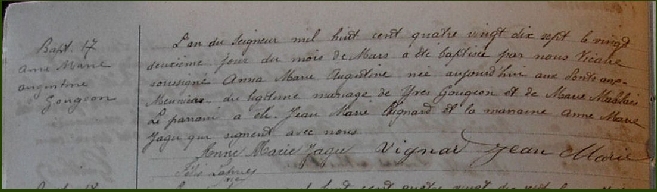 Bapt. 17
Anne Marie
Augustine
Gougeon
L'an du Seigneur mil huit cent quatre vingt dix sept le vingt
deuxième jour du mois de Mars a été baptisée par nous Vicaire
soussigné Anna Marie Augustine née aujourd'hui aux
Meuniers du légitime mariage de Yves Gougeon et de Marie
Le parrain a été Jean Marie Vignard et la marraine Anne Marie
Jagu qui signent avec nous
Anne Marie Jagu Vignar Jean Marie
Bapt. 17